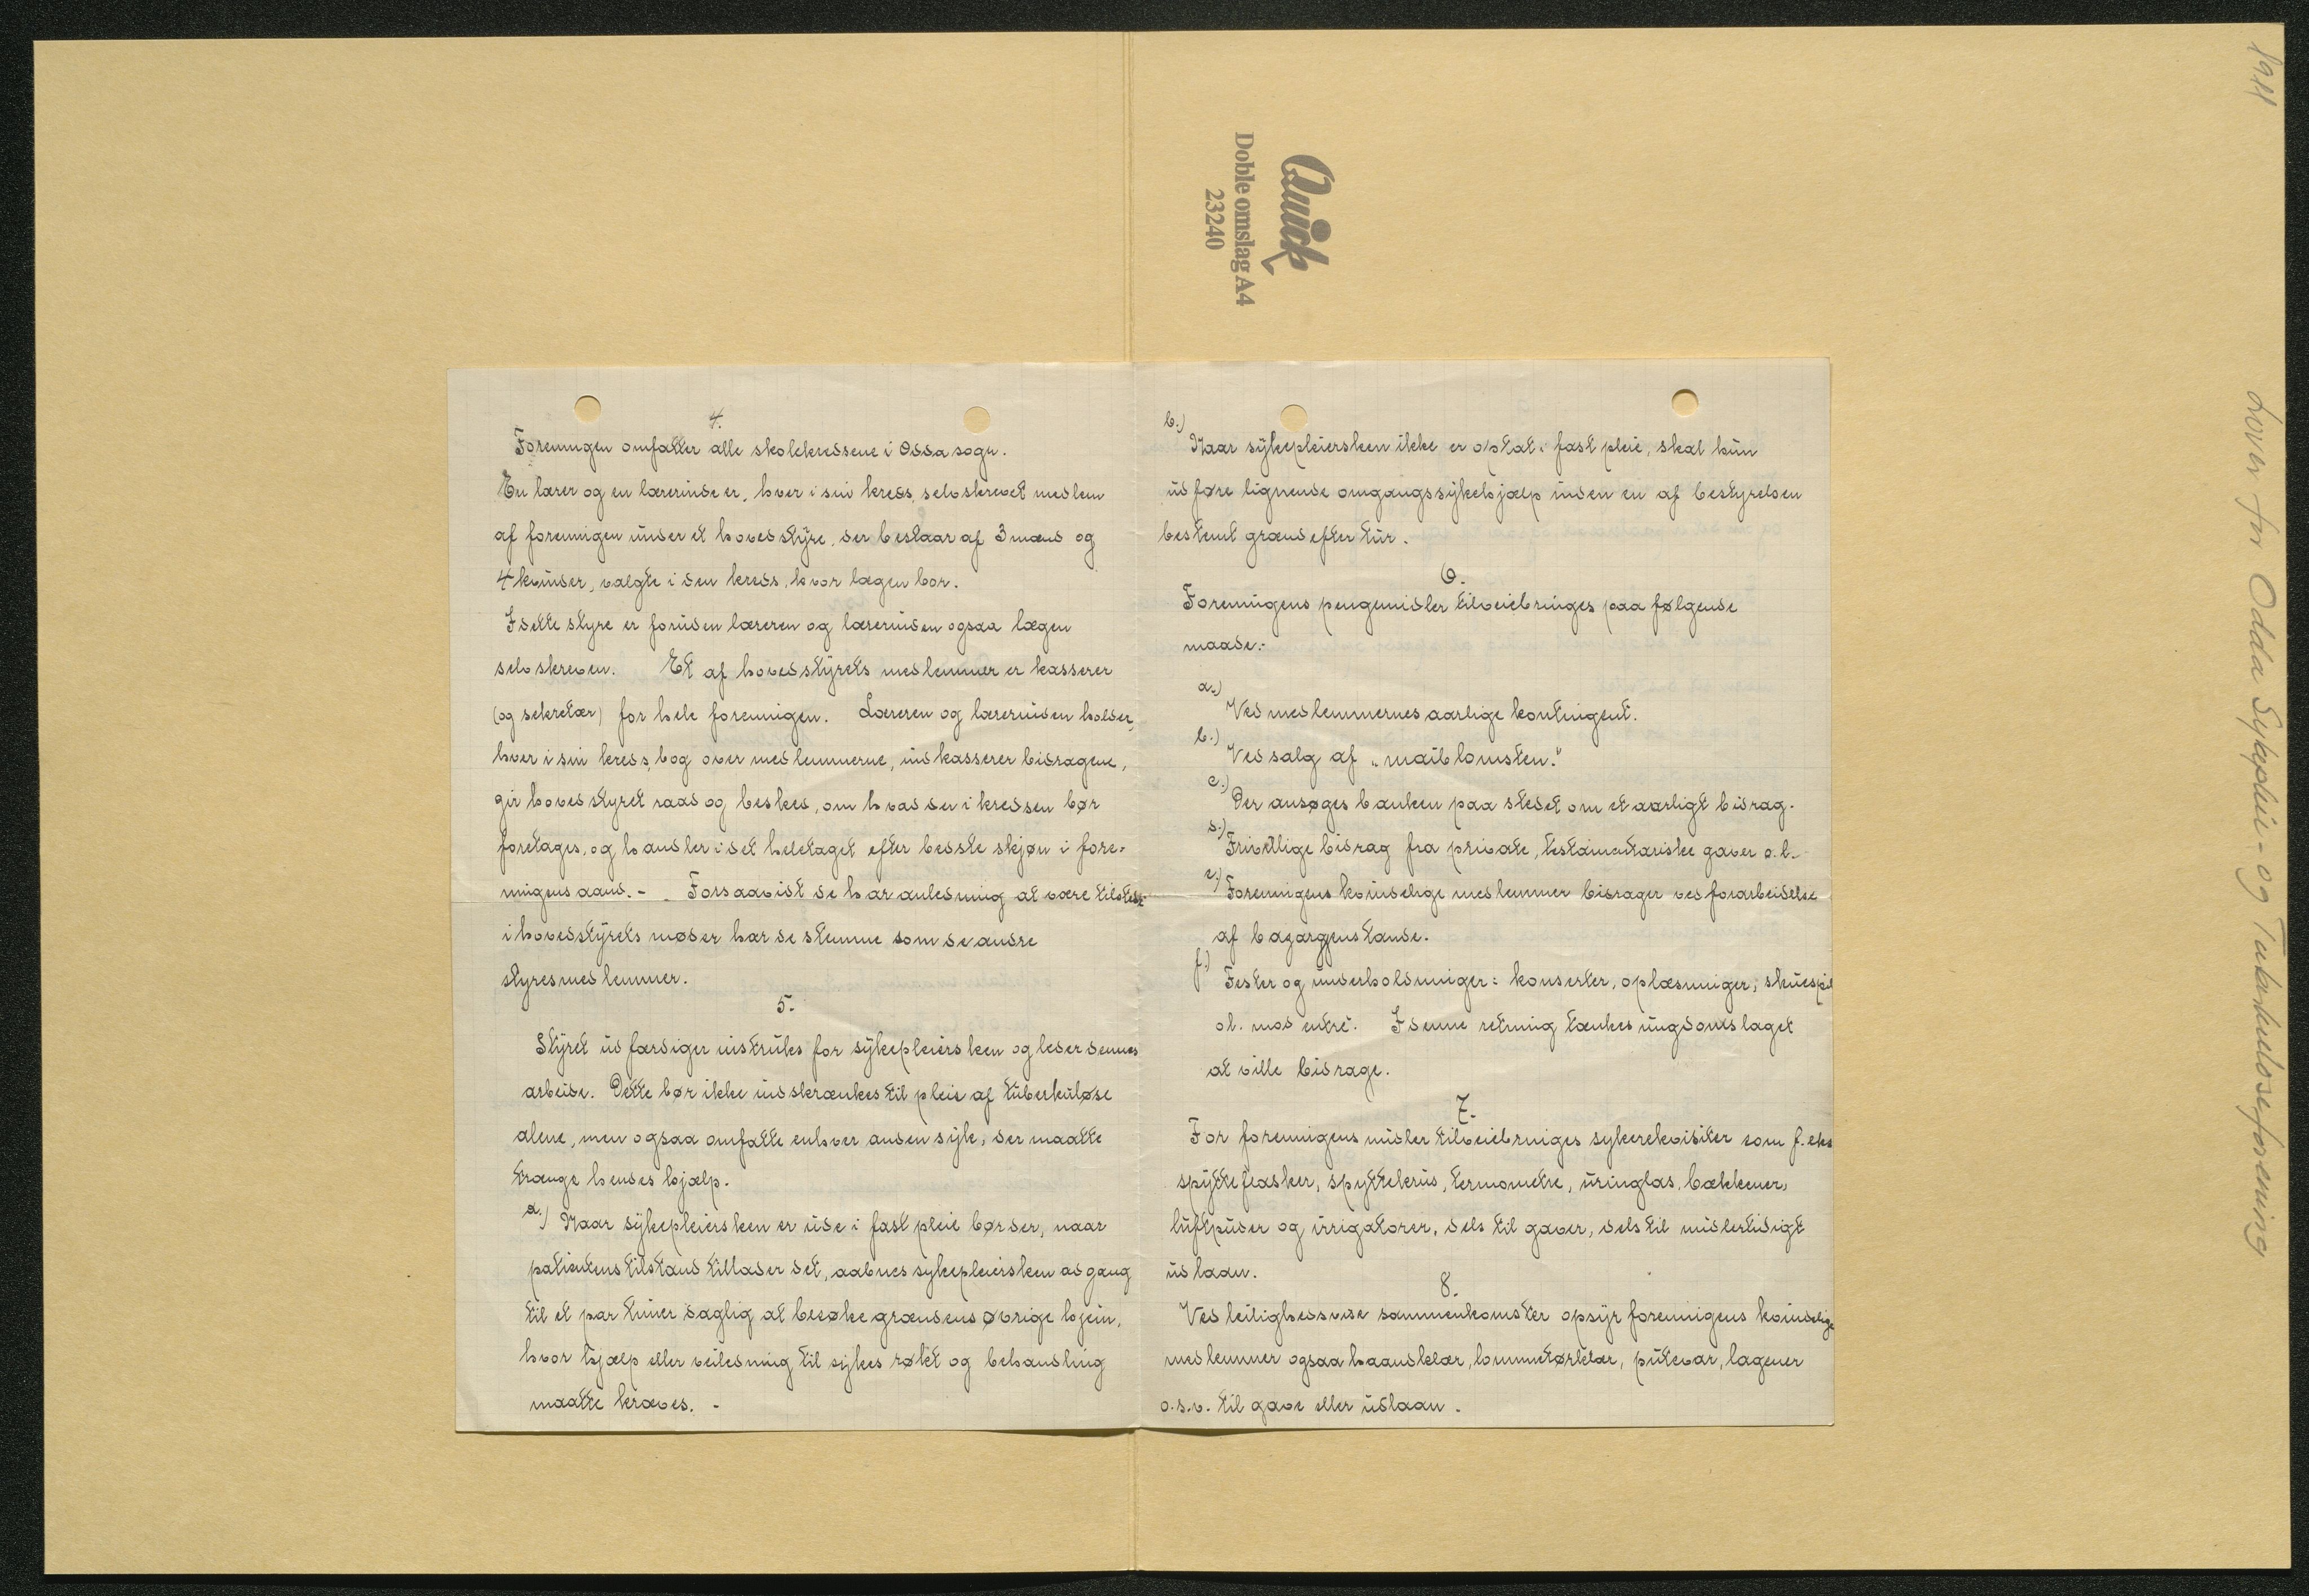 1911
Lover for Odda Sykepleie- og Tuberkuloseforening
Quick
Doble omslag A4
23240
4.
Foreningen omfatter alle skolekredsene i Odda sogn.
En lærer og en lærerinde er, hver i sin kreds, selvskrevet medlem
af foreningen under et hovedstyre, der bestaar af 3 mænd og
4 kvinder, valgte i den kreds, hvor lægen bor.
I dette styre er foruden læreren og lærerinden ogsaa lægen
selvskreven. Et af hovedstyrets medlemmer er kasserer
(og sekretær) for hele foreningen. Læreren og lærerinden holder,
hver i sin kreds, bog over medlemmerne, indkasserer bidragene,
gir hovedstyret raad og besked, om hvad der i kredsen bør
foretages, og handler i det heletaget efter bedste skjøn i fore-
ningens aand. - Forsaavidt de har anledning at være tilstede
i hovedstyrets møder har de stemme som de andre
styresmedlemmer.
5.
Styret udfærdiger instruks for sykepleiersken og leder dennes
arbeide. Dette bør ikke indskrænkes til pleie af tuberkuløse
alene, men ogsaa omfatte enhver anden syk, der maatte
trænge hendes hjælp.
a.) Naar sykepleiersken er ude i fast pleie bør der, naar
patientens tilstand tillader det, aabnes sykepleiersken adgang
til et par timer daglig at besøke grændens øvrige hjem,
hvor hjælp eller veiledning til sykes røkt og behandling
maatte kræves. -
b.)
Naar sykepleiersken ikke er optat i fast pleie, skal hun
udføre lignende omgangssykehjælp inden en af bestyrelsen
bestemt grænd efter tur.
6.
Foreningens pengemidler tilveiebringes paa følgende
maade:-
a.)
Ved medlemmernes aarlige kontingent.
b.)
Ved salg af "maiblomsten."
c.)
Der ansøges banken paa stedet om et aarligt bidrag.
d.)
Frivillige bidrag fra private, testamentariske gaver o.l.
e.)
Foreningens kvindelige medlemmer bidrager ved forarbeidelse
af bazargjenstande.
f.)
Fester og underholdninger: konserter, oplæsninger, skuespil
ol. mod entré. I denne retning tænkes ungdomslaget
at ville bidrage.
7.
For foreningens midler tilveiebringes sykerekvisiter som f. eks
spytteflasker, spyttekrus, termometre, uringlas, bækkener,
luftputer og irrigatorer, dels til gaver, dels til midlertidigt
udlaan.
8.
Ved leilighedsvise sammenkomster opsyr foreningens kvindelige
medlemmer ogsaa haandklær, lommetørklær, putevar, lagener
o.s.v. til gave eller udlaan.